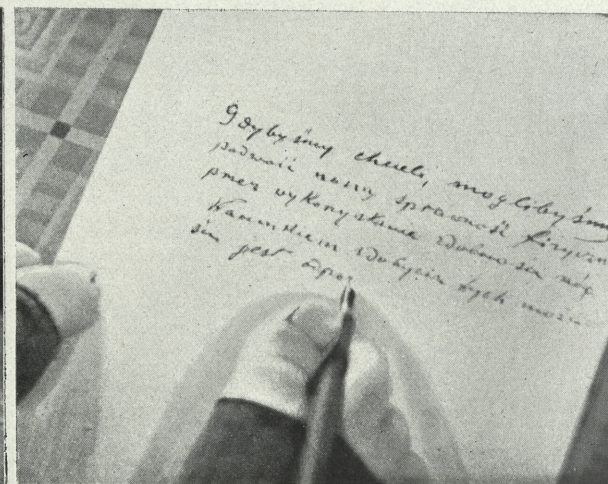 Gdybyśmy chcieli, moglibyśmy
podwoić naszą sprawność fizyczn
przez wykorzystanie zdolności nóg
Warunkiem zdobycia tych możli
ści jest opa